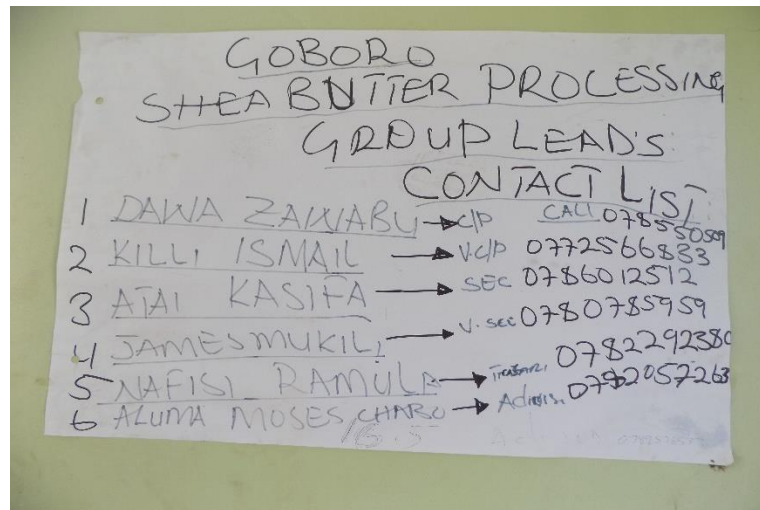 GOBORO
SHEA BUTTER PROCESSING
GROUP LEAD'S
CONTACT LIST
1 DAWA ZAWABU → C/P CALL 0785550509
2 KILLI ISMAIL → V.C/P 0772566833
3 ATAI KASIFA → SEC 0786012512
4 JAMES MUKILI → V. SEC 0780785959
5 NAFISI RAMULA → 0782292380
6 ALUMA MOSES CHABO → 0792057263